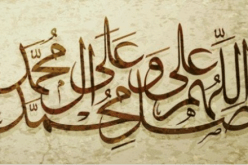 اللهم صل على محمد وعلى ال محمد